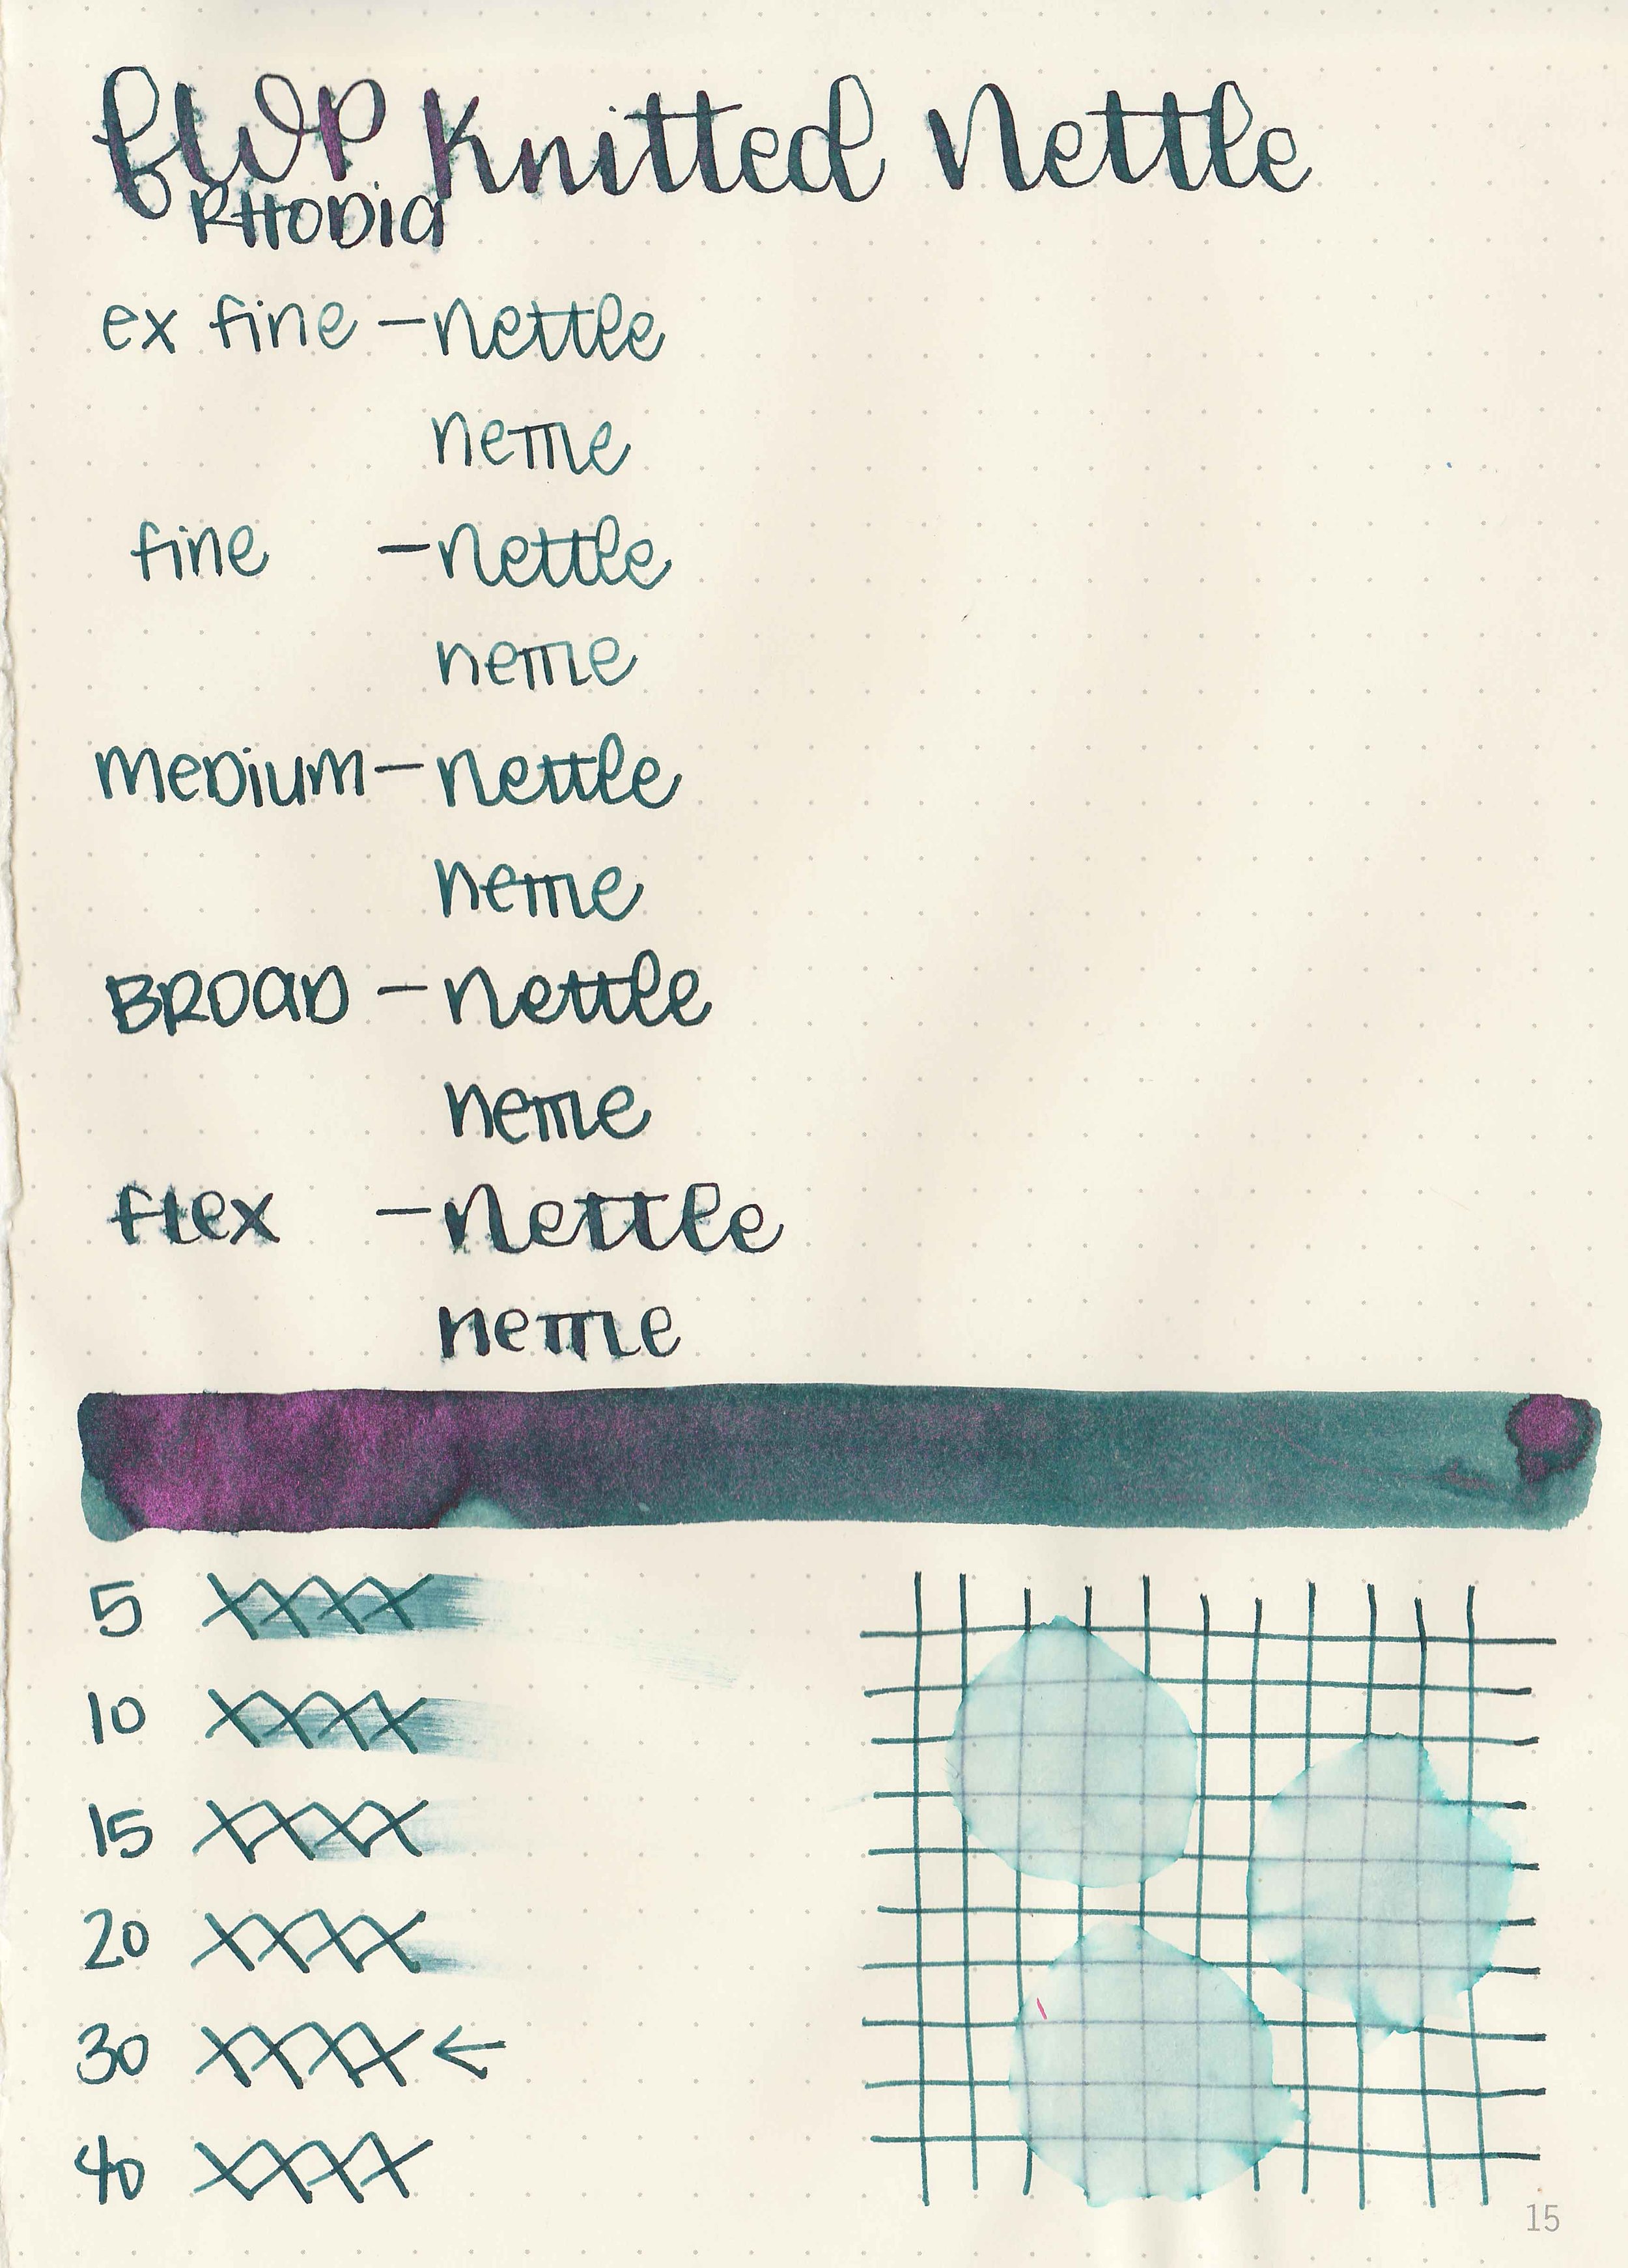 FWP Knitted Nettle
RHODia
ex fine - nettle
nettle
fine - nettle
nettle
MEDium - nettle
nettle
BROaD - nettle
nettle
flex - nettle
nettle
5 XXXX
10 XXXX
15 XXXX
20 XXXX
30 XXXX ←
40 XXXX
15